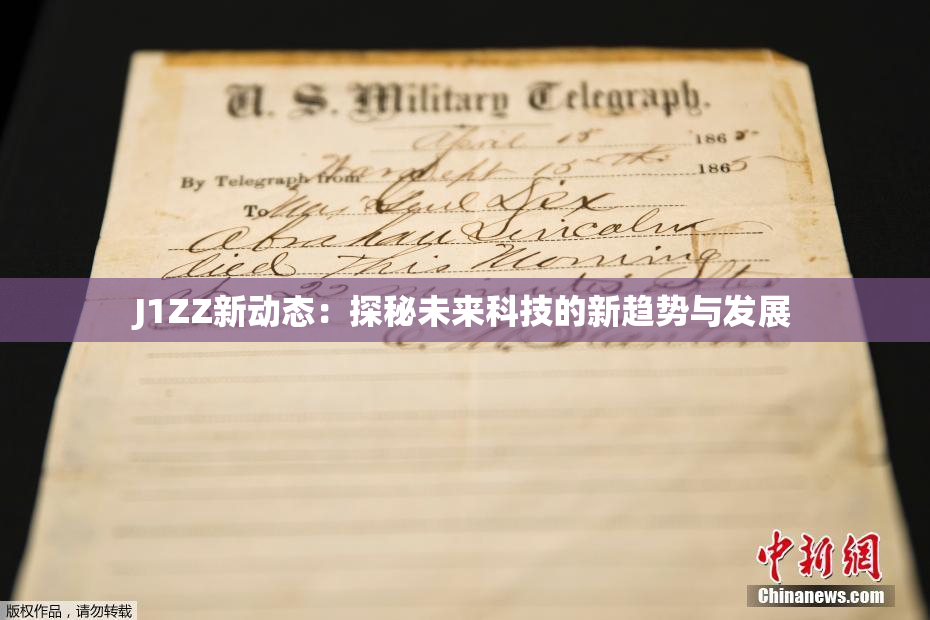 U. S. Military Telegraph.
April 15 1865
By Telegraph from War Dept 15th 1865
To Maj Genl Dix
Abraham Lincoln
died This Morning
at 22 minutes after
J1ZZ新动态：探秘未来科技的新趋势与发展
E. M. Stanton
中新网
Chinanews.com
版权作品，请勿转载